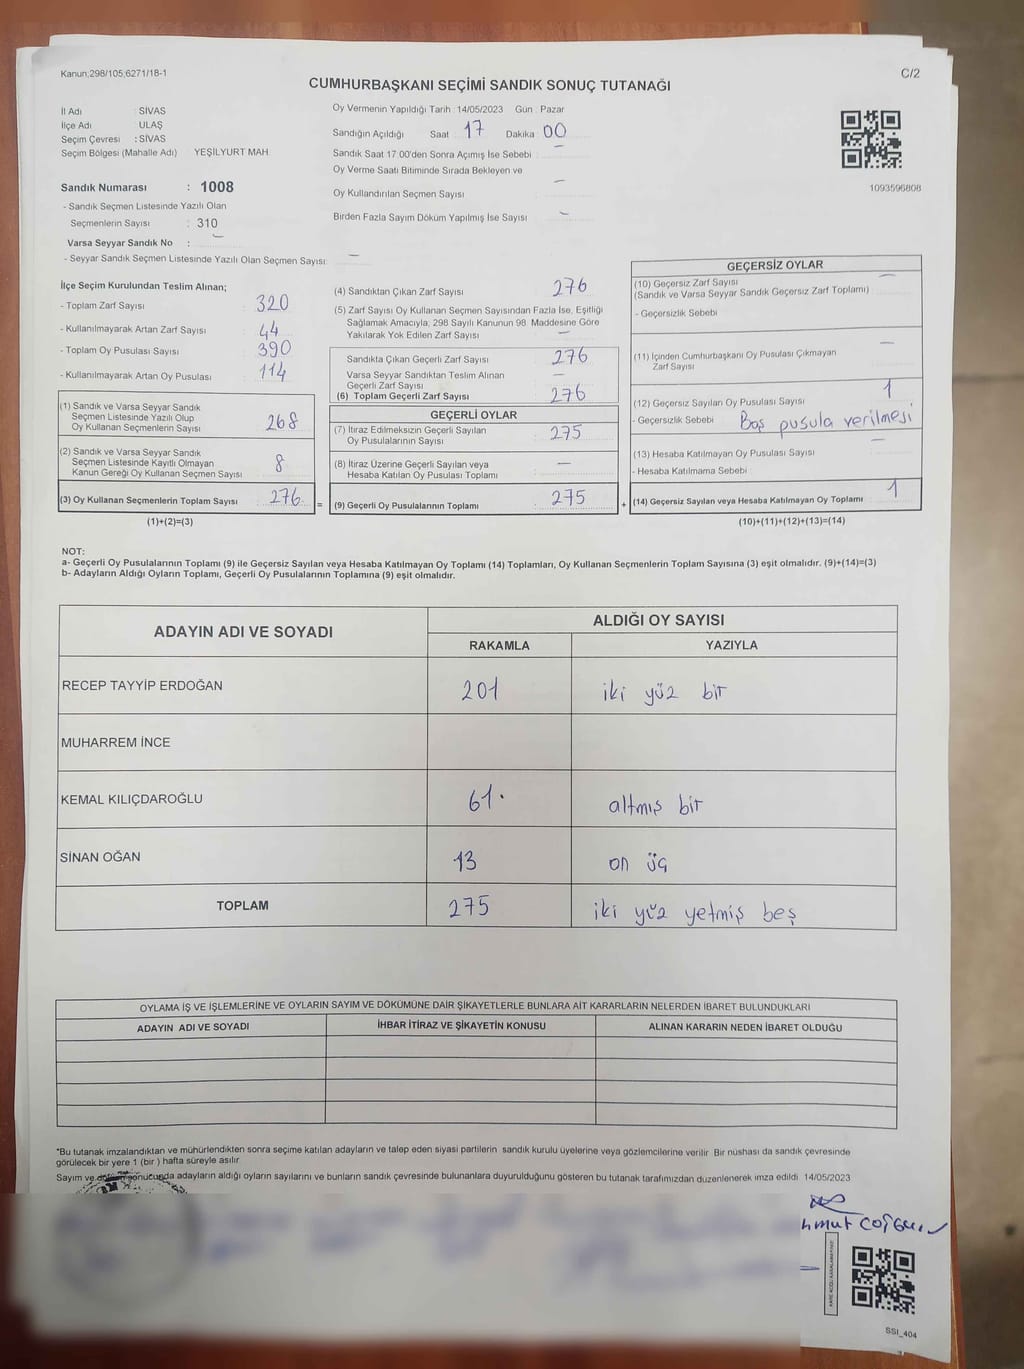 Kanun;298/105;6271/18-1
C/2
CUMHURBAŞKANI SEÇİMİ SANDIK SONUÇ TUTANAĞI
İl Adı : SİVAS
İlçe Adı : ULAŞ
Seçim Çevresi : SİVAS
Seçim Bölgesi (Mahalle Adı) YEŞİLYURT MAH.
Sandık Numarası : 1008
- Sandık Seçmen Listesinde Yazılı Olan
Seçmenlerin Sayısı : 310
Varsa Seyyar Sandık No : –
- Seyyar Sandık Seçmen Listesinde Yazılı Olan Seçmen Sayısı: –
Oy Vermenin Yapıldığı Tarih : 14/05/2023 Gün : Pazar
Sandığın Açıldığı Saat 17 Dakika 00
Sandık Saat 17:00'den Sonra Açımış İse Sebebi : –
Oy Verme Saati Bitiminde Sırada Bekleyen ve
Oy Kullandırılan Seçmen Sayısı –
Birden Fazla Sayım Döküm Yapılmış İse Sayısı –
1093596808
İlçe Seçim Kurulundan Teslim Alınan;
- Toplam Zarf Sayısı : 320
- Kullanılmayarak Artan Zarf Sayısı : 44
- Toplam Oy Pusulası Sayısı : 390
- Kullanılmayarak Artan Oy Pusulası : 114
(1) Sandık ve Varsa Seyyar Sandık
Seçmen Listesinde Yazılı Olup
Oy Kullanan Seçmenlerin Sayısı : 268
(2) Sandık ve Varsa Seyyar Sandık
Seçmen Listesinde Kayıtlı Olmayan
Kanun Gereği Oy Kullanan Seçmen Sayısı 8
(3) Oy Kullanan Seçmenlerin Toplam Sayısı : 276 =
(1)+(2)=(3)
(4) Sandıktan Çıkan Zarf Sayısı : 276
(5) Zarf Sayısı Oy Kullanan Seçmen Sayısından Fazla İse, Eşitliği
Sağlamak Amacıyla; 298 Sayılı Kanunun 98. Maddesine Göre
Yakılarak Yok Edilen Zarf Sayısı : –
Sandıkta Çıkan Geçerli Zarf Sayısı : 276
Varsa Seyyar Sandıktan Teslim Alınan
Geçerli Zarf Sayısı : –
(6) Toplam Geçerli Zarf Sayısı : 276
GEÇERLİ OYLAR
(7) İtiraz Edilmeksizin Geçerli Sayılan
Oy Pusulalarının Sayısı : 275
(8) İtiraz Üzerine Geçerli Sayılan veya
Hesaba Katılan Oy Pusulası Toplamı : –
(9) Geçerli Oy Pusulalarının Toplamı : 275 +
GEÇERSİZ OYLAR
(10) Geçersiz Zarf Sayısı –
(Sandık ve Varsa Seyyar Sandık Geçersiz Zarf Toplamı)
- Geçersizlik Sebebi
(11) İçinden Cumhurbaşkanı Oy Pusulası Çıkmayan –
Zarf Sayısı
(12) Geçersiz Sayılan Oy Pusulası Sayısı 1
- Geçersizlik Sebebi : Boş pusula verilmesi
(13) Hesaba Katılmayan Oy Pusulası Sayısı –
- Hesaba Katılmama Sebebi
(14) Geçersiz Sayılan veya Hesaba Katılmayan Oy Toplamı 1
(10)+(11)+(12)+(13)=(14)
NOT:
a- Geçerli Oy Pusulalarının Toplamı (9) ile Geçersiz Sayılan veya Hesaba Katılmayan Oy Toplamı (14) Toplamları, Oy Kullanan Seçmenlerin Toplam Sayısına (3) eşit olmalıdır. (9)+(14)=(3)
b- Adayların Aldığı Oyların Toplamı, Geçerli Oy Pusulalarının Toplamına (9) eşit olmalıdır.
ADAYIN ADI VE SOYADI ALDIĞI OY SAYISI
RAKAMLA YAZIYLA
RECEP TAYYİP ERDOĞAN 201 iki yüz bir
MUHARREM İNCE
KEMAL KILIÇDAROĞLU 61. altmış bir
SİNAN OĞAN 13 on üç
TOPLAM 275 iki yüz yetmiş beş
OYLAMA İŞ VE İŞLEMLERİNE VE OYLARIN SAYIM VE DÖKÜMÜNE DAİR ŞİKAYETLERLE BUNLARA AİT KARARLARIN NELERDEN İBARET BULUNDUKLARI
ADAYIN ADI VE SOYADI İHBAR İTİRAZ VE ŞİKAYETİN KONUSU ALINAN KARARIN NEDEN İBARET OLDUĞU
*Bu tutanak imzalandıktan ve mühürlendikten sonra seçime katılan adayların ve talep eden siyasi partilerin sandık kurulu üyelerine veya gözlemcilerine verilir. Bir nüshası da sandık çevresinde
görülecek bir yere 1 (bir ) hafta süreyle asılır.
Sayım ve sonucunda adayların aldığı oyların sayılarını ve bunların sandık çevresinde bulunanlara duyurulduğunu gösteren bu tutanak tarafımızdan düzenlenerek imza edildi. 14/05/2023
SSI_404